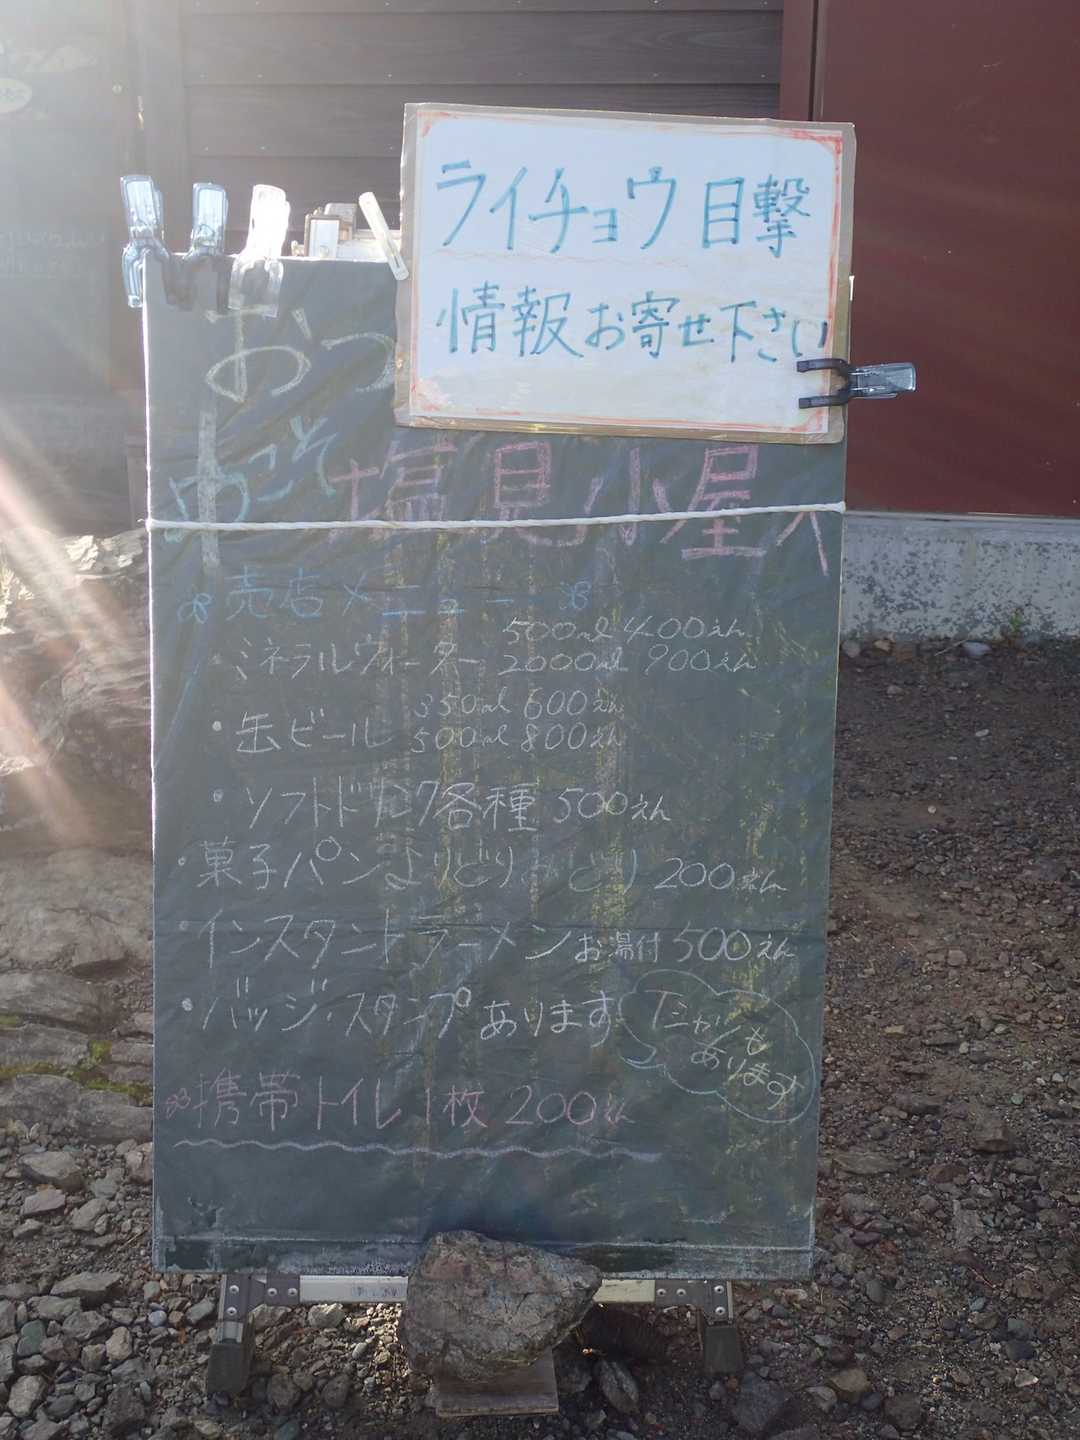 ライチョウ目撃
情報お寄せ下さい
おつ
ようこそ 塩見小屋へ
売店メニュー
ミネラルウォーター 500ml 400えん
2000ml 900えん
・缶ビール 350ml 600えん
500ml 800えん
・ソフトドリンク各種 500えん
・菓子パンよりどりみどり 200えん
・インスタントラーメン お湯付 500えん
・バッジ・スタンプあります
Tシャツも
あります
携帯トイレ 1枚 200えん